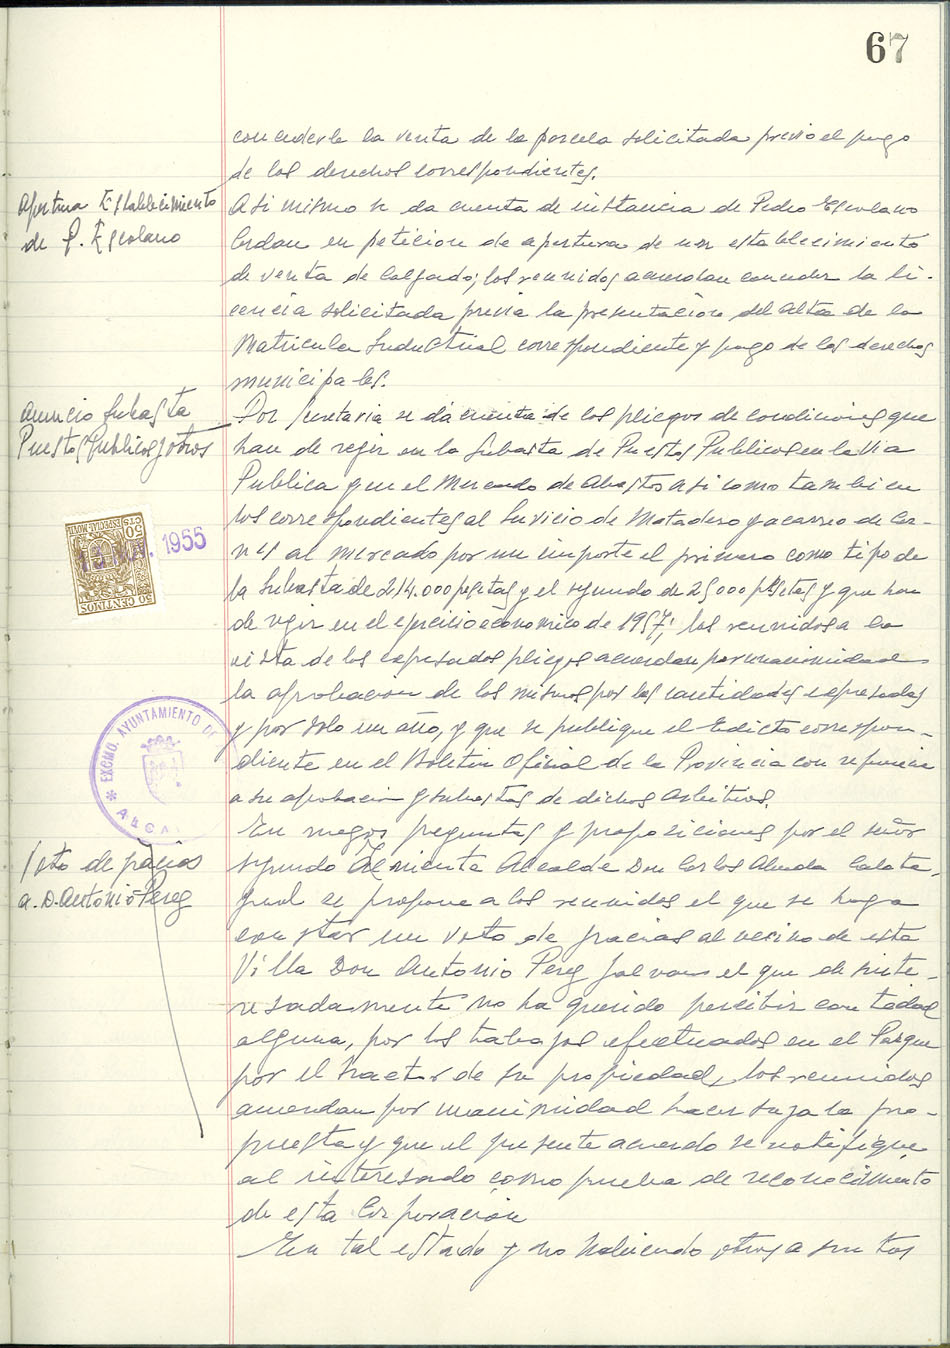 67
concederle la venta de la parcela solicitada previo el pago
de los derechos correspondientes.
Apertura Establecimiento
de P. Escolano
Asi mismo se da cuenta de instancia de Pedro Escolano
Cerdan en peticion de apertura de un establecimiento
de venta de Calzado; los reunidos acuerdan conceder la li-
cencia solicitada previa la presentación del Alta de la
Matricula Industrial correspondiente y pago de los derechos
municipales.
Anuncio Subasta
Puestos Publicos y otros
Por Secretaria se da cuenta de los pliegos de condiciones que
han de regir en la Subasta de Puestos Publicos en la Via
Publica y en el Mercado de Abastos asi como tambien
los correspondientes al Servicio de Matadero y acarreo de Car-
nes al mercado por un importe el primero como tipo de
la Subasta de 214.000 pesetas y el segundo de 25000 pesetas y que han
de regir en el ejercicio economico de 1957; los reunidos a la
vista de los expresados pliegos acuerdan por unanimidad
la aprobacion de los mismos por las cantidades expresadas
y por solo un año, y que se publique el Edicto correspon-
diente en el Boletin Oficial de la Provincia con referencia
a su aprobacion y subastas de dichos Arbitrios.
50 CENTIMOS
ESPECIAL MOVIL
50 CTS
1955
EXCMO. AYUNTAMIENTO DE
Voto de gracias
a D. Antonio Perez
En ruegos preguntas y proposiciones por el señor
segundo Teniente Alcalde Don Carlos
se propone a los reunidos el que se haga
constar un voto de gracias al vecino de esta
Villa Don Antonio Perez Galvan el que desinte-
resadamente no ha querido percibir cantidad
alguna, por los trabajos efectuados en el Parque
por el tractor de su propiedad, los reunidos
acuerdan por unanimidad hacer suya la pro-
puesta y que el presente acuerdo se notifique
al interesado como prueba de reconocimiento
de esta Corporación
En tal estado y no habiendo otros asuntos